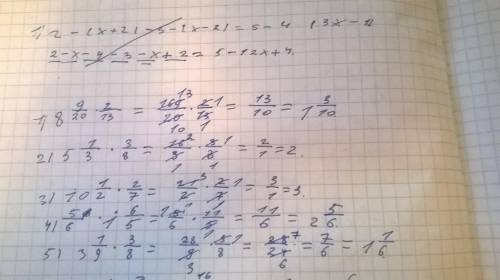 1) 2 - (x+2) - 3 - (x-2) = 5 - 4 (3x - 1)
2-x-4-3-x+2 = 5-12x+4.
1) 8 9/20 · 2/13 = 169/20 · 2/13 = 13/10 = 1 3/10
2) 5 1/3 · 3/8 = 16/3 · 3/8 = 2/1 = 2.
3) 10 1/2 · 2/7 = 21/2 · 2/7 = 3/1 = 3.
4) 5/6 · 1 6/5 = 5/6 · 11/5 = 11/6 = 2 5/6
5) 3 1/9 · 3/8 = 28/9 · 3/8 = 28/24 = 7/6 = 1 1/6